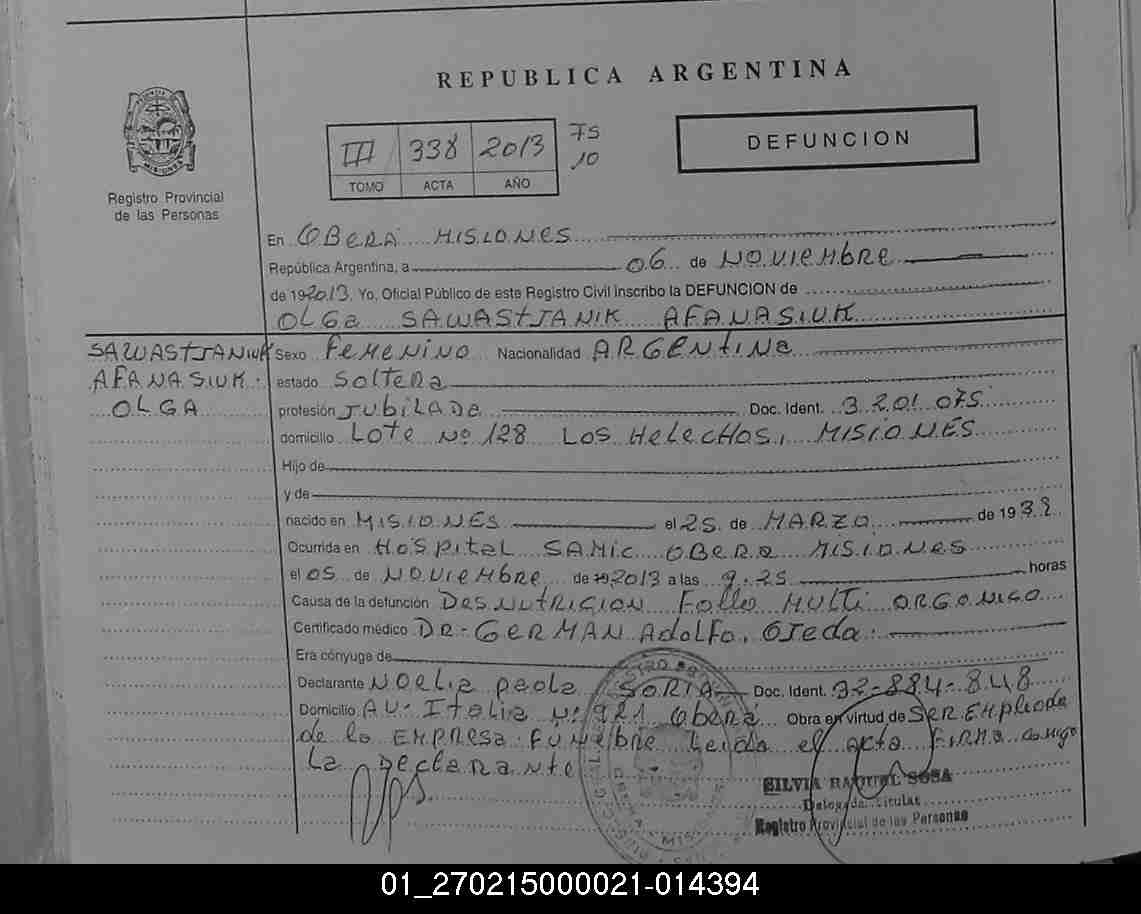 REPUBLICA ARGENTINA
III 338 2013 75
10
TOMO ACTA AÑO
DEFUNCION
Registro Provincial
de las Personas
En OBERA MISIONES
República Argentina, a 06 de NOVIEMbRE
de 192013. Yo, Oficial Público de este Registro Civil inscribo la DEFUNCION de
OLGa SAWAStJANIK AFANASIUK
SAWAStJANIUK
AFANASIUK.
OLGA
Sexo FEMENINO Nacionalidad ARGENtiNa
estado SOLTERA
profesión JUbiLADa Doc. Ident. 3.201.075
domicilio LOte Nº 128 LOS HeLeCHOS, MISIONES
Hijo de
y de
nacido en MISIONES el 25 de MARZO de 1938
Ocurrida en HOSPitaL SAMIC OBERa MISIONES
el 05 de NOVIEMbRE de 192013 a las 9:25 horas
Causa de la defunción DESNUTRICION FaLLo MULti ORGONICO
Certificado médico DR- GERMAN AdoLFo. OJeda.
Era cónyuge de
Declarante NOELia paola SORIA Doc. Ident. 32-884-848
Domicilio AV- ItaLia Nº 921 Oberá Obra en virtud de SER EMpLeada
de la EMPRESA FUNEbRE Leida el acta FIRMA conmigo
La DecLaRANte
SILVIA RAQUEL SOSA
Delegada Titular
Registro Provincial de las Personas
01_270215000021-014394